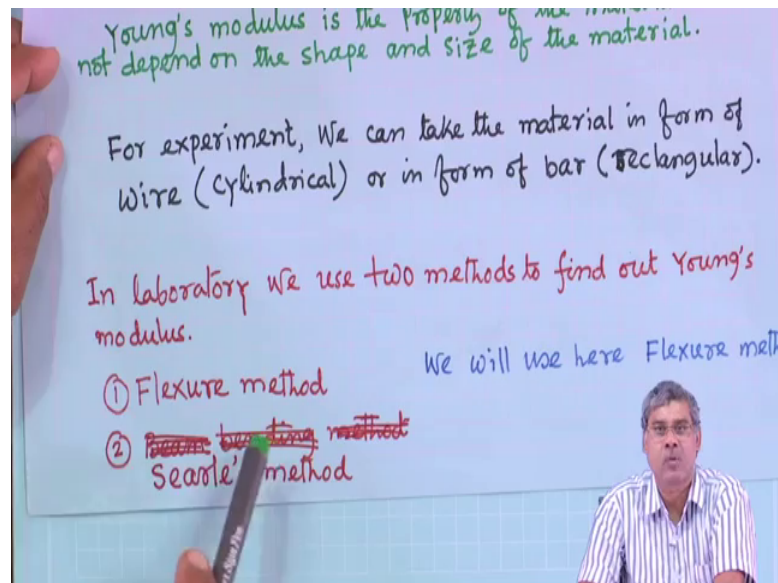 Young's modulus is the Property of the
not depend on the shape and size of the material.
For experiment, We can take the material in form of
wire (Cylindrical) or in form of bar (rectangular).
In laboratory We use two methods to find out Young's
modulus.
We will use here Flexure
① Flexure method
② Beam bending method
Searle's method